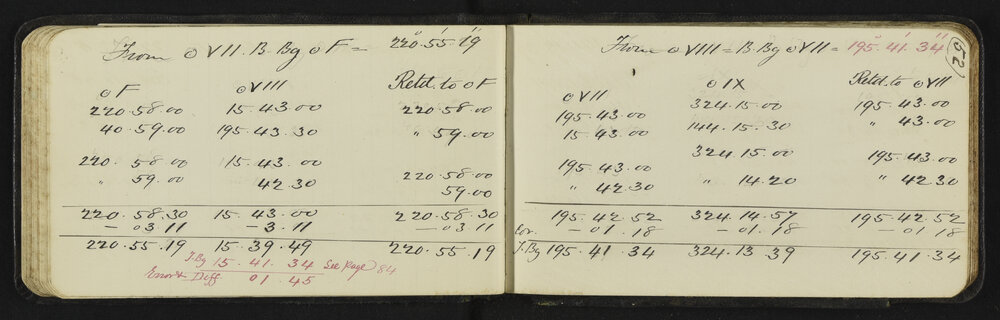 From o VII. B. Bg o F = 220° 55' 19"
o F o VIII Retd. to o F
220. 58. 00 15. 43. 00 220. 58. 00
40. 59. 00 195. 43. 30 " 59. 00
220. 58. 00 15. 43. 00 220. 58. 00
" 59. 00 42. 30 59. 00
220. 58. 30 15. 43. 00 220. 58. 30
— 03. 11 — 3. 11 — 03. 11
220. 55. 19 15. 39. 49 220. 55. 19
T. Bg 15. 41. 34 See Page 84
Error & Diff. 01. 45
52
From o VIII = B. Bg o VII = 195° 41' 34"
o VII o IX Retd. to o VII
195. 43. 00 324. 15. 00 195. 43. 00
15. 43. 00 144. 15. 30 " 43. 00
195. 43. 00 324. 15. 00 195. 43. 00
" 42. 30 " 14. 20 " 42. 30
195. 42. 52 324. 14. 57 195. 42. 52
Cor. — 01. 18 — 01. 18 — 01 18
T. Bg 195. 41. 34 324. 13. 39 195. 41. 34